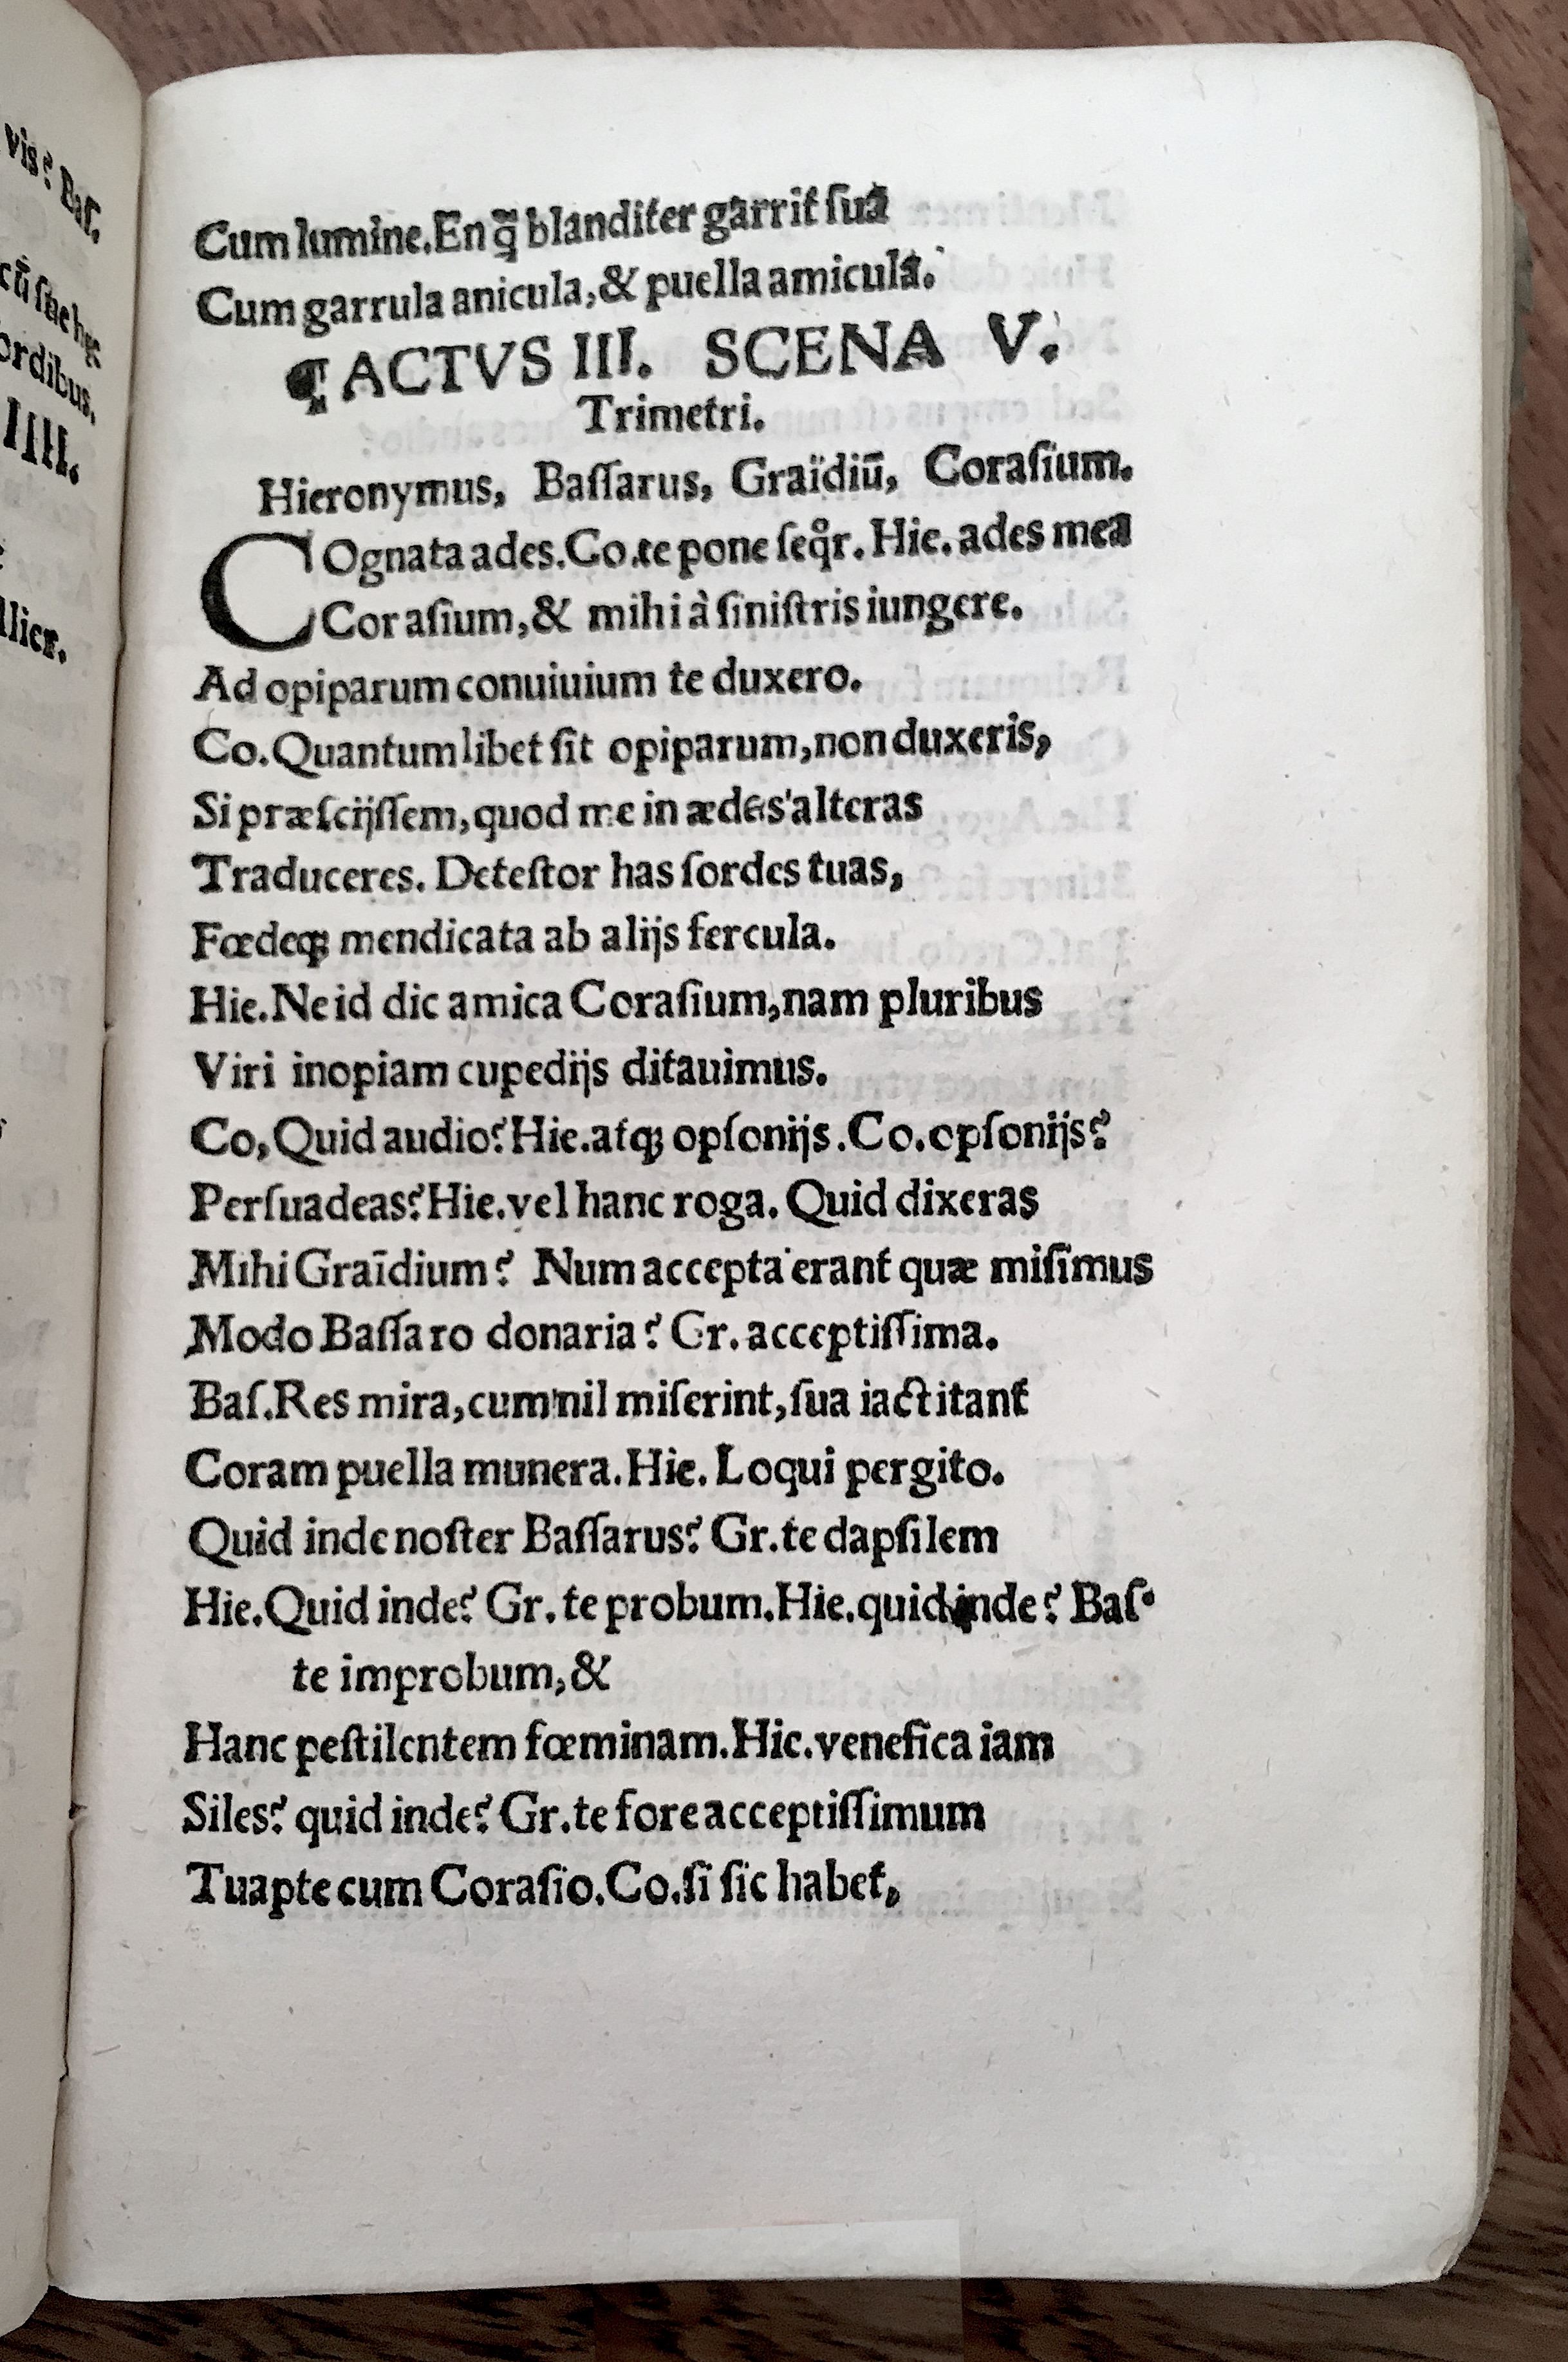 vis? Baſ.
cũ
ordibus.
IIII.
llier.
Cum lumine. En q̃ blanditer garrit ſuã
Cum garrula anicula, & puella amiculã.
¶ ACTVS III. SCENA V.
Trimetri.
Hieronymus, Baſſarus, Graïdiũ, Coraſium.
COgnata ades. Co. te pone ſeq̃r. Hie. ades mea
Coraſium, & mihi à ſiniſtris iungere.
Ad opiparum conuiuium te duxero.
Co. Quantumlibet ſit opiparum, non duxeris,
Si præſcijſſem, quod me in ædes alteras
Traduceres. Deteſtor has ſordes tuas,
Fœdeq; mendicata ab alijs fercula.
Hie. Ne id dic amica Coraſium, nam pluribus
Viri inopiam cupedijs ditauimus.
Co, Quid audio? Hie. atq; opſonijs. Co. opſonijs?
Perſuadeas? Hie. vel hanc roga. Quid dixeras
Mihi Graïdium? Num accepta erant quæ miſimus
Modo Baſſaro donaria? Gr. acceptiſſima.
Baſ. Res mira, cum nil miſerint, ſua iactitant
Coram puella munera. Hie. Loqui pergito.
Quid inde noſter Baſſarus? Gr. te dapſilem
Hie. Quid inde? Gr. te probum. Hie. quid inde? Baſ.
te improbum, &
Hanc peſtilentem fœminam. Hie. venefica iam
Siles? quid inde? Gr. te fore acceptiſſimum
Tuapte cum Coraſio. Co. ſi ſic habet,